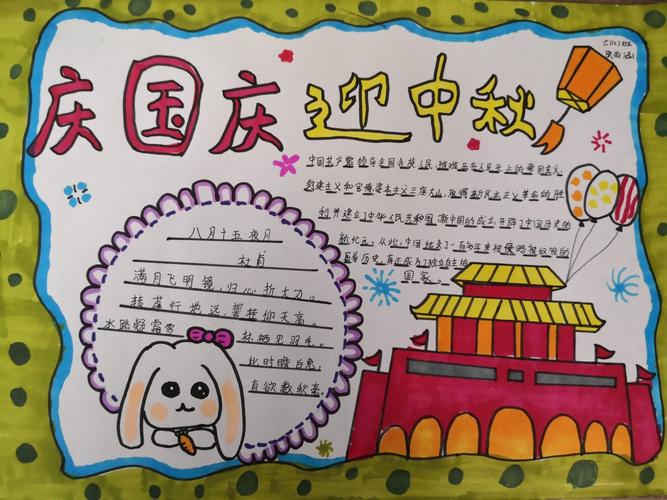 庆国庆迎中秋
中国共产党领导全国各族人民,推翻压在人民头上的帝国主义、
封建主义和官僚资本主义三座大山,取得新民主主义革命的胜
利并建立了中华人民共和国。新中国的成立,开辟了中国历史的
新纪元。从此,中国结束了一百多年来被侵略被奴役的
屈辱历史,真正成为了独立自主的
国家。
八月十五夜月
杜甫
满月飞明镜,归心折大刀。
转蓬行地远,攀桂仰天高。
水路疑霜雪 林栖见羽毛。
此时瞻白兔,
直欲数秋毫